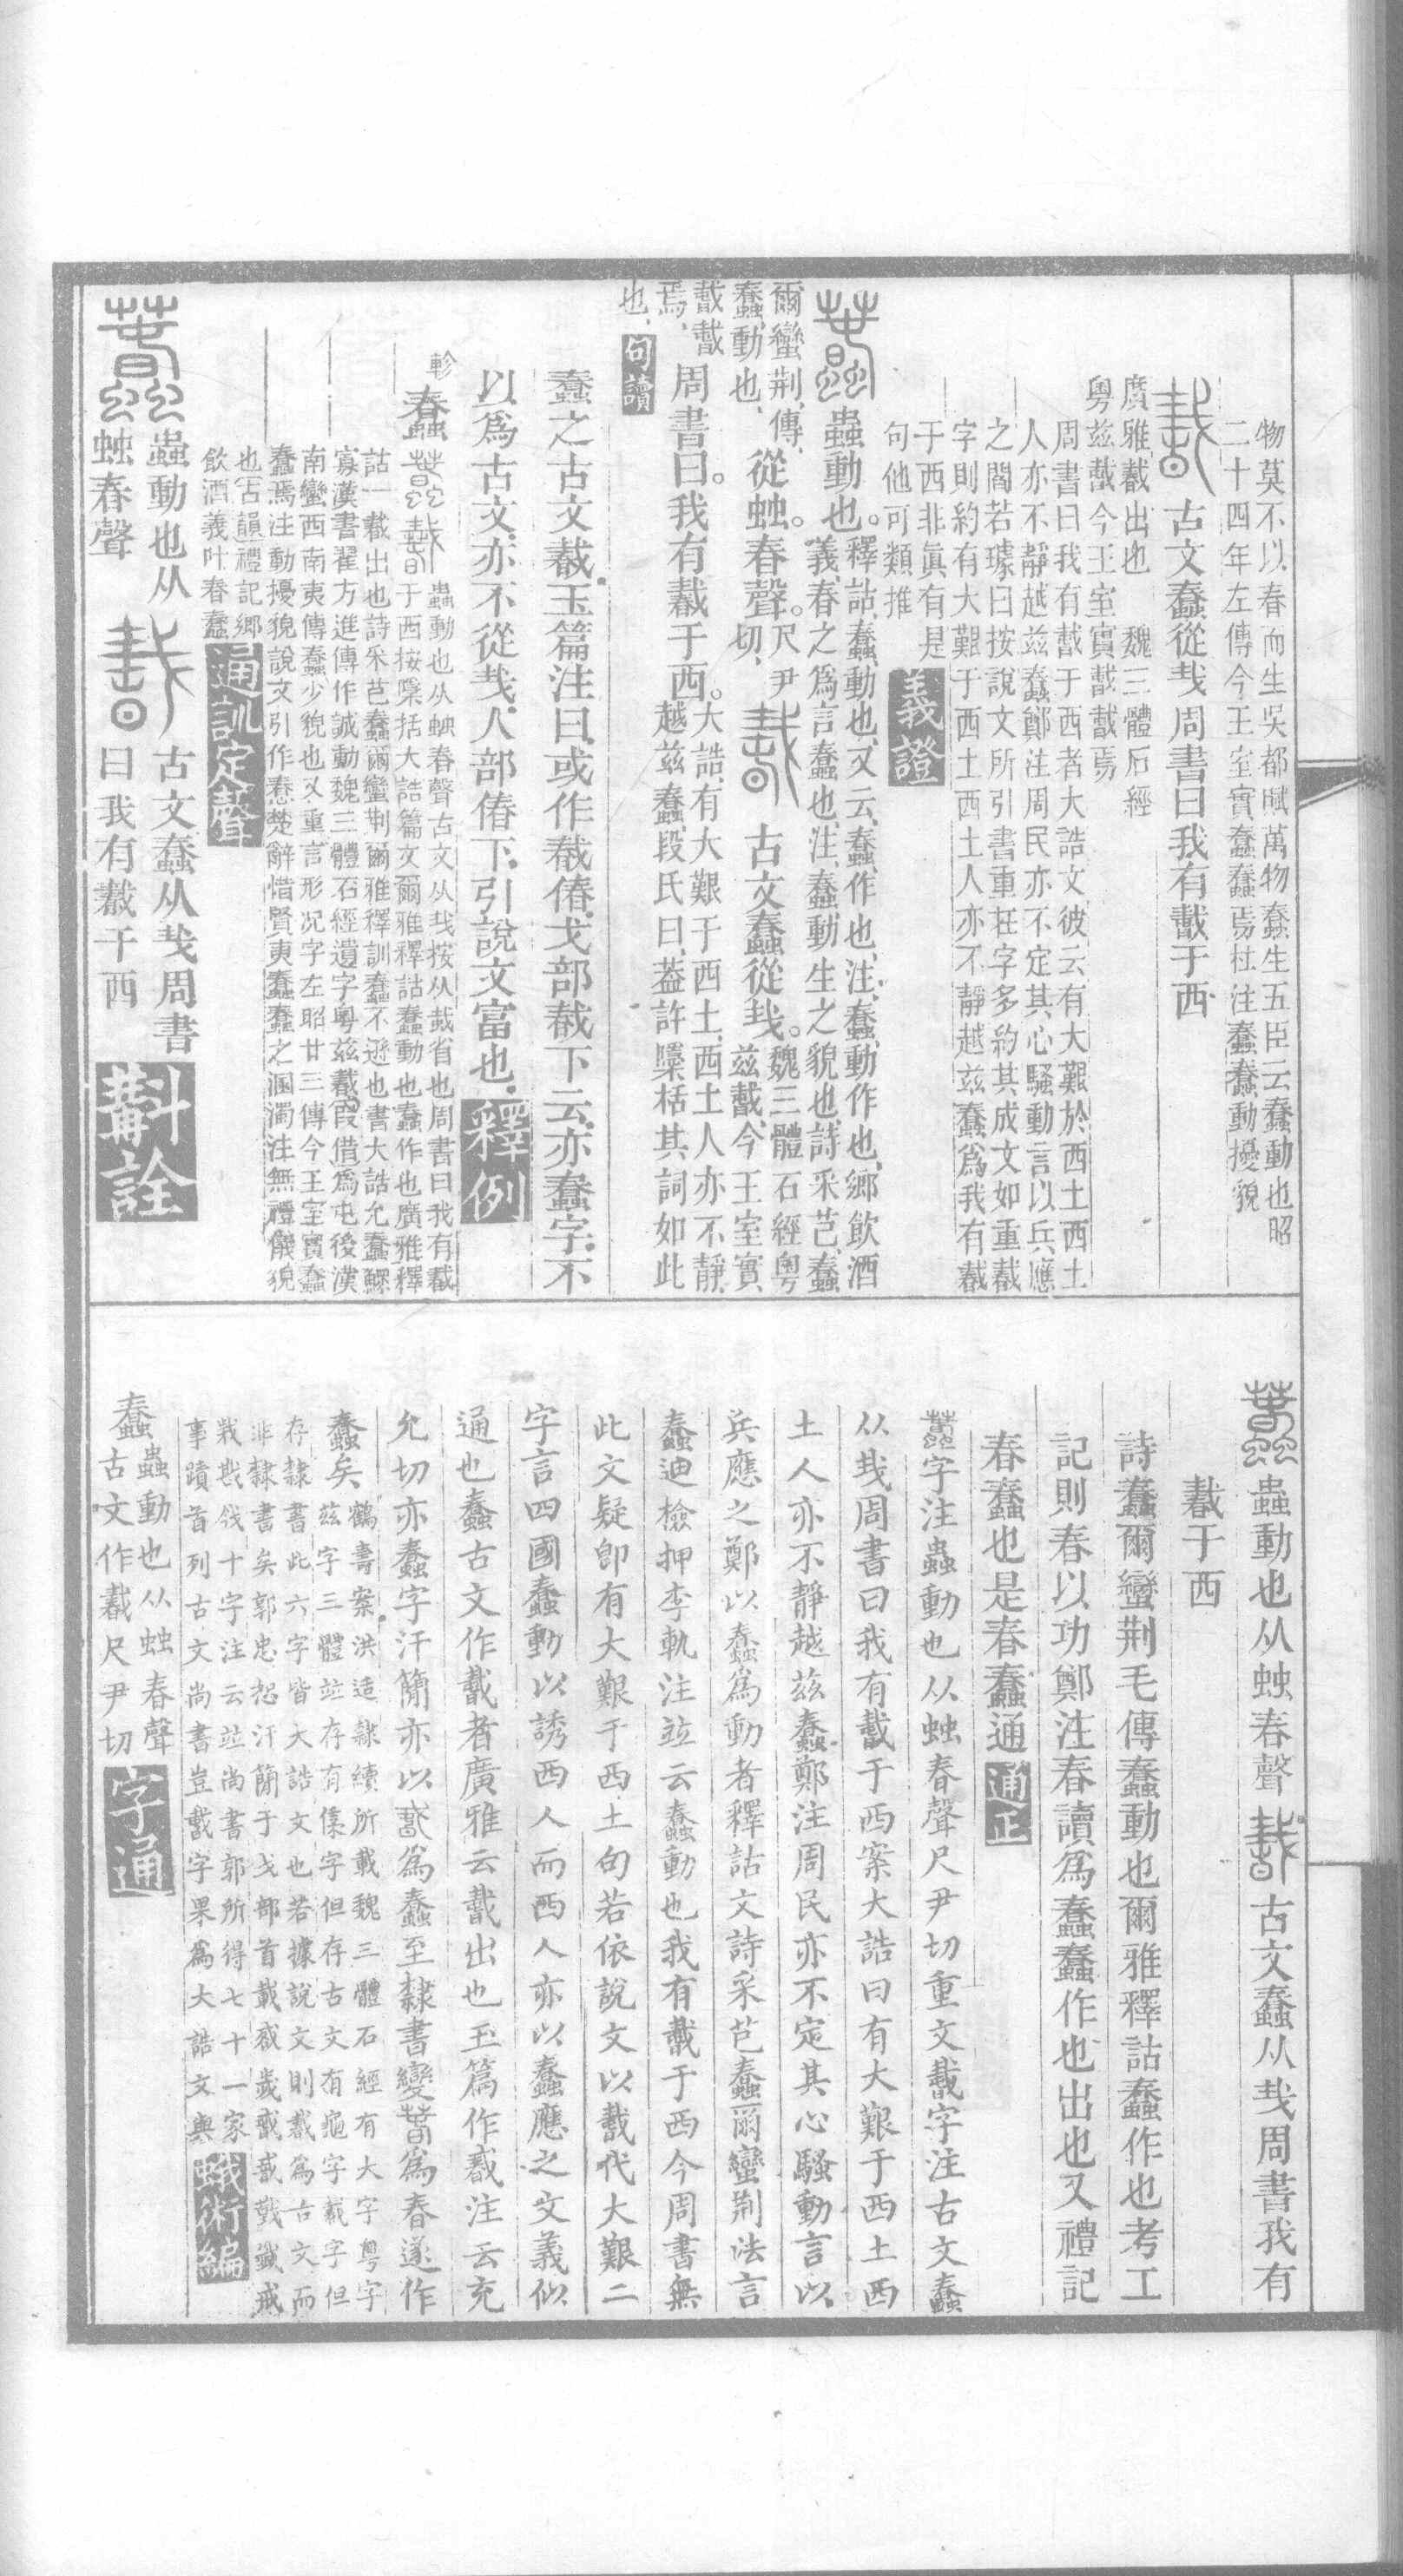 物莫不以春而生吳都賦萬物蠢生五臣云蠢動也昭
二十四年左傳今王室實蠢蠢焉杜注蠢蠢動擾貌
古文蠢從𢦏周書曰我有𢧵于西
廣雅𢧵出也 魏三體石經
粵兹𢧵今王室實𢧵𢧵焉
周書曰我有𢧵于西者大誥文彼云有大艱於西土西土
人亦不靜越兹蠢鄭注周民亦不定其心騷動言以兵應
之閻若璩曰按說文所引書重在字多約其成文如重𢧵
字則約有大艱于西土西土人亦不靜越兹蠢為我有𢧵
于西非真有是
句他可類推
義證
蟲動也。釋詁,蠢,動也,又云,蠢,作也,注,蠢,動作也,鄉飲酒
義,春之為言蠢也,注,蠢動生之貌也,詩采芑,蠢
爾蠻荆,傳,
蠢,動也,
從䖵。春聲。尺尹切,
古文蠢從𢦏。魏三體石經粵
兹𢧵,今王室實
𢧵𢧵焉,
周書曰。我有𢧵于西。大誥,有大艱于西土,西土人亦不靜,
越兹蠢,段氏曰,葢許檃栝其詞如此
也,
句讀
蠢之古文𢧵,玉篇注曰,或作𢧵偆,戈部𢧵下云,亦蠢字,不
以為古文,亦不從𢦏,人部偆下,引說文富也,
釋例
軫
蠢 蟲動也从䖵春聲古文从𢦏按从𢦏省也周書曰我有𢧵
于西按檃括大誥篇文爾雅釋詁蠢動也蠢作也廣雅釋
詁一𢧵出也詩采芑蠢爾蠻荆爾雅釋訓蠢不遜也書大誥允蠢鰥
寡漢書翟方進傳作誠動魏三體石經遺字粵兹𢧵叚借為屯後漢
南蠻西南夷傳蠢少貌也又重言形况字左昭廿三傳今王室實蠢
蠢焉注動擾貌說文引作惷楚辭惜賢夷蠢蠢之溷濁注無禮儀貌
也古韻禮記鄉
飲酒義叶春蠢
通訓定聲
蟲動也从
䖵春聲
古文蠢从𢦏周書
曰我有𢧵于西
斠詮
蟲動也从䖵春聲 古文蠢从𢦏周書我有
𢧵于西
詩蠢爾蠻荆毛傳蠢動也爾雅釋詁蠢作也考工
記則春以功鄭注春讀為蠢蠢作也出也又禮記
春蠢也是春蠢通
通正
字注蟲動也从䖵春聲尺尹切重文𢧵字注古文蠢
从𢦏周書曰我有𢧵于西案大誥曰有大艱于西土西
土人亦不靜越兹蠢鄭注周民亦不定其心騷動言以
兵應之鄭以蠢為動者釋詁文詩采芑蠢爾蠻荆法言
蠢迪檢押李軌注竝云蠢動也我有𢧵于西今周書無
此文疑卽有大艱于西土句若依說文以𢧵代大艱二
字言四國蠢動以誘西人而西人亦以蠢應之文義似
通也蠢古文作𢧵者廣雅云𢧵出也玉篇作𢧵注云充
允切亦蠢字汗簡亦以 為蠢至隸書變 為春遂作
蠢矣
鶴壽案洪适隸續所載魏三體石經有大字粵字
兹字三體竝存有㒸字但存古文有龜字𢧵字但
存隸書此六字皆大誥文也若據說文則𢧵為古文而
非隸書矣郭忠恕汗簡于戈部首
十字注云竝尚書郭所得七十一家
事蹟首列古文尚書豈𢧵字果為大誥文與
蛾術編
蠢
蟲動也从䖵春聲
古文作𢧵尺尹切
字通